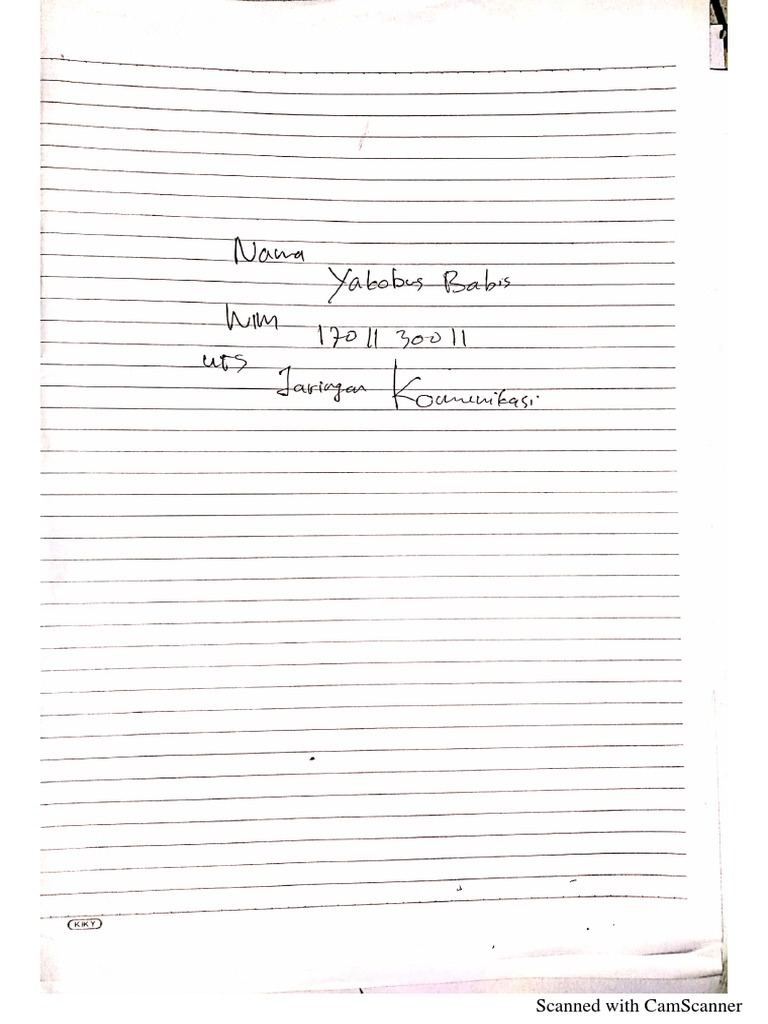 Nama
Yakobus Babis
NIM
1701130011
UTS
Jaringan Komunikasi
KIKY
Scanned with CamScanner